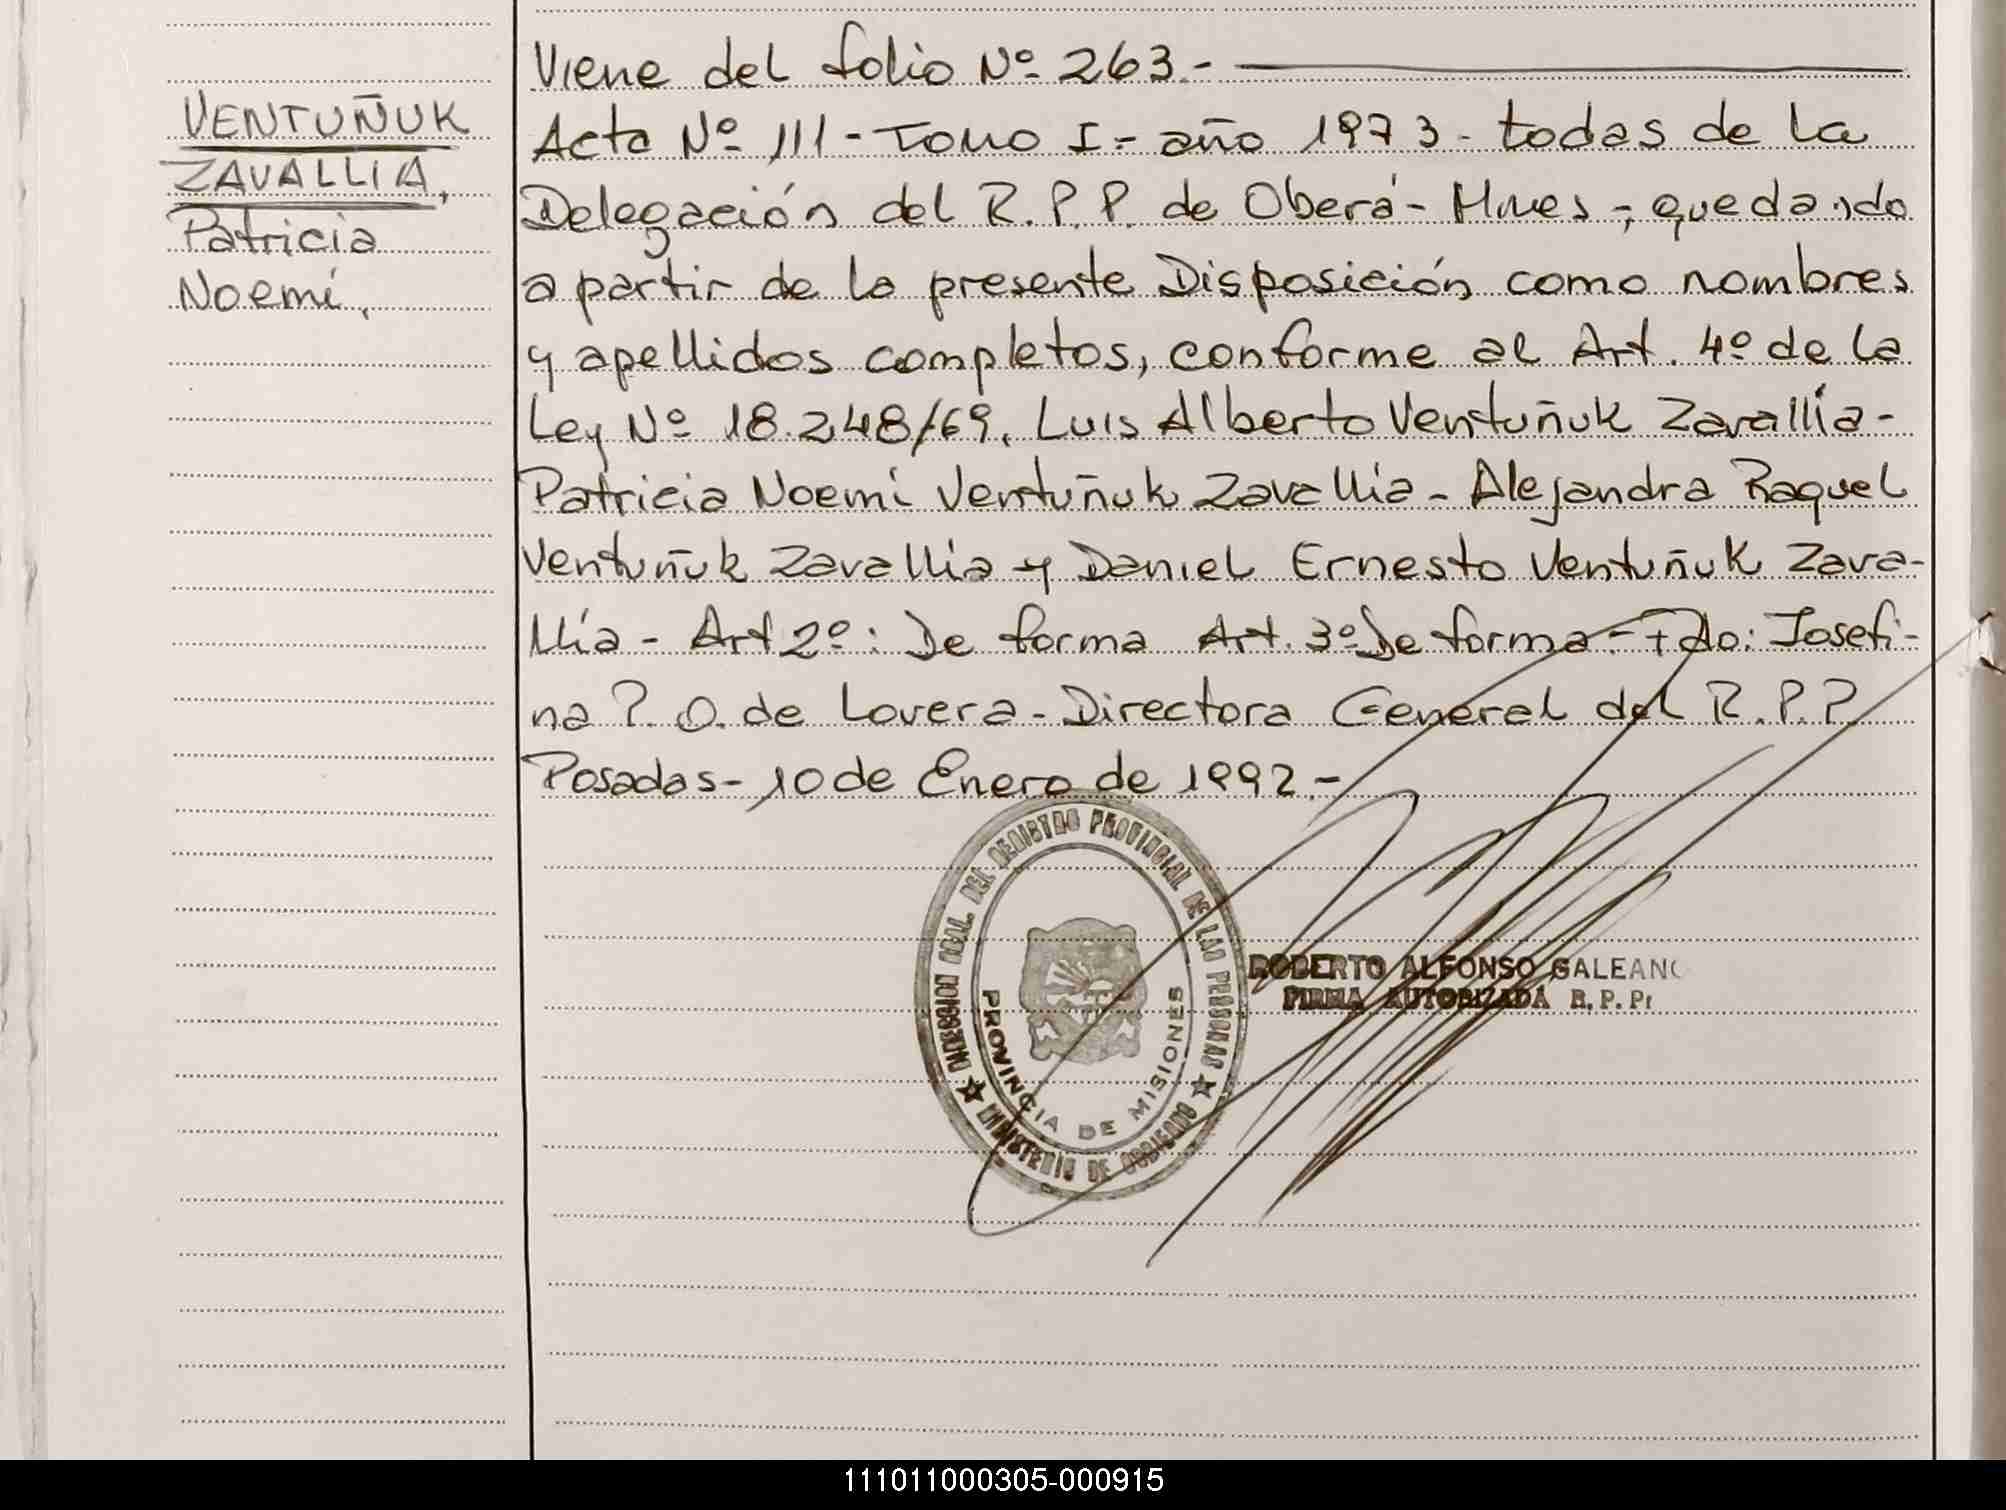 VENTUÑUK
ZAVALLIA,
Patricia
Noemí,
Viene del folio Nº 263.-
Acta Nº 111 - Tomo I - año 1973 - todas de la
Delegación del R.P.P. de Oberá - Mnes -, quedando
a partir de la presente Disposición como nombres
y apellidos completos, conforme al Art. 4º de la
Ley Nº 18.248/69, Luis Alberto Ventuñuk Zavallía -
Patricia Noemí Ventuñuk Zavallía - Alejandra Raquel
Ventuñuk Zavallía y Daniel Ernesto Ventuñuk Zava-
llía - Art 2º: De forma Art. 3º De forma - Fdo: Josefi-
na P. O. de Lovera - Directora General del R.P.P.
Posadas - 10 de Enero de 1992.-
DIRECCION GRAL. DEL REGISTRO PROVINCIAL DE LAS PERSONAS
MINISTERIO DE GOBIERNO
PROVINCIA DE MISIONES
ROBERTO ALFONSO GALEANO
FIRMA AUTORIZADA R.P.P.
111011000305-000915